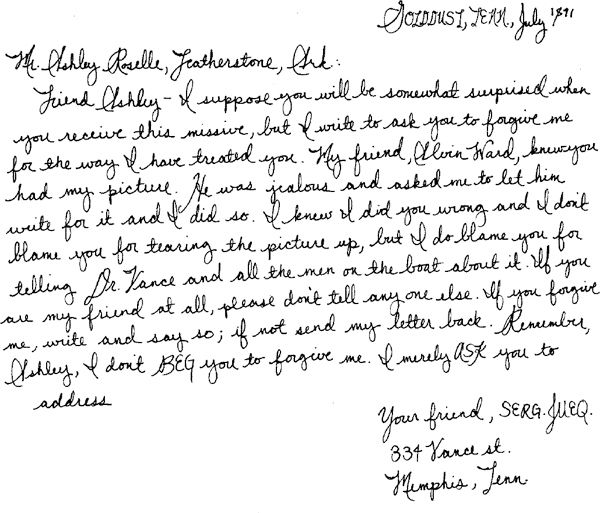 GOLDDUST, TENN., July 1891
Mr. Ashley Roselle, Featherstone, Ark:
Friend Ashley - I suppose you will be somewhat surprised when
you receive this missive, but I write to ask you to forgive me
for the way I have treated you. My friend, Alvin Ward, knew you
had my picture. He was jealous and asked me to let him
write for it and I did so. I knew I did you wrong and I don't
blame you for tearing the picture up, but I do blame you for
telling Dr. Vance and all the men on the boat about it. If you
are my friend at all, please don't tell any one else. If you forgive
me, write and say so; if not send my letter back. Remember,
Ashley, I don't BEG you to forgive me. I merely ASK you to
address
Your friend, SERG. JUEQ.
334 Vance st.
Memphis, Tenn.